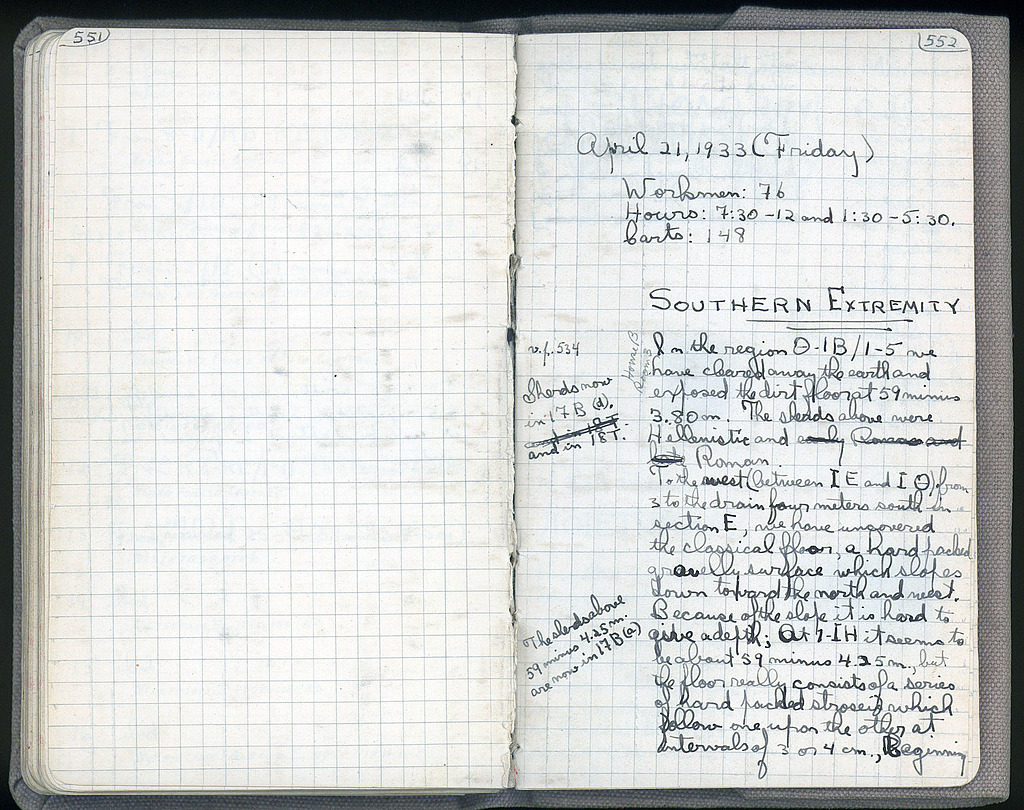 551
552
April 21, 1933 (Friday)
Workmen: 76
Hours: 7:30 - 12 and 1:30 - 5:30.
Carts: 148
SOUTHERN EXTREMITY
v. p. 534
House B
Room 3
In the region Θ-ΙΒ/1-5 we
have cleared away the earth and
exposed the dirt floor at 59 minus
3.80 m. The sherds above were
Hellenistic and early Roman and
late Roman.
Sherds now
in 17 B (d).
and in 18 T
and in 18 T.
To the west (between ΙΕ and ΙΘ) from
3 to the drain four meters south in
section Ε, we have uncovered
the classical floor, a hard packed
gravelly surface which slopes
down toward the north and west.
Because of the slope it is hard to
give a depth; At 7-ΙΗ it seems to
be about 59 minus 4.25 m., but
the floor really consists of a series
of hard packed stroseis which
follow one upon the other at
intervals of 3 or 4 cm., Beginning
The sherds above
59 minus 4.25 m.
are now in 17 B (a)